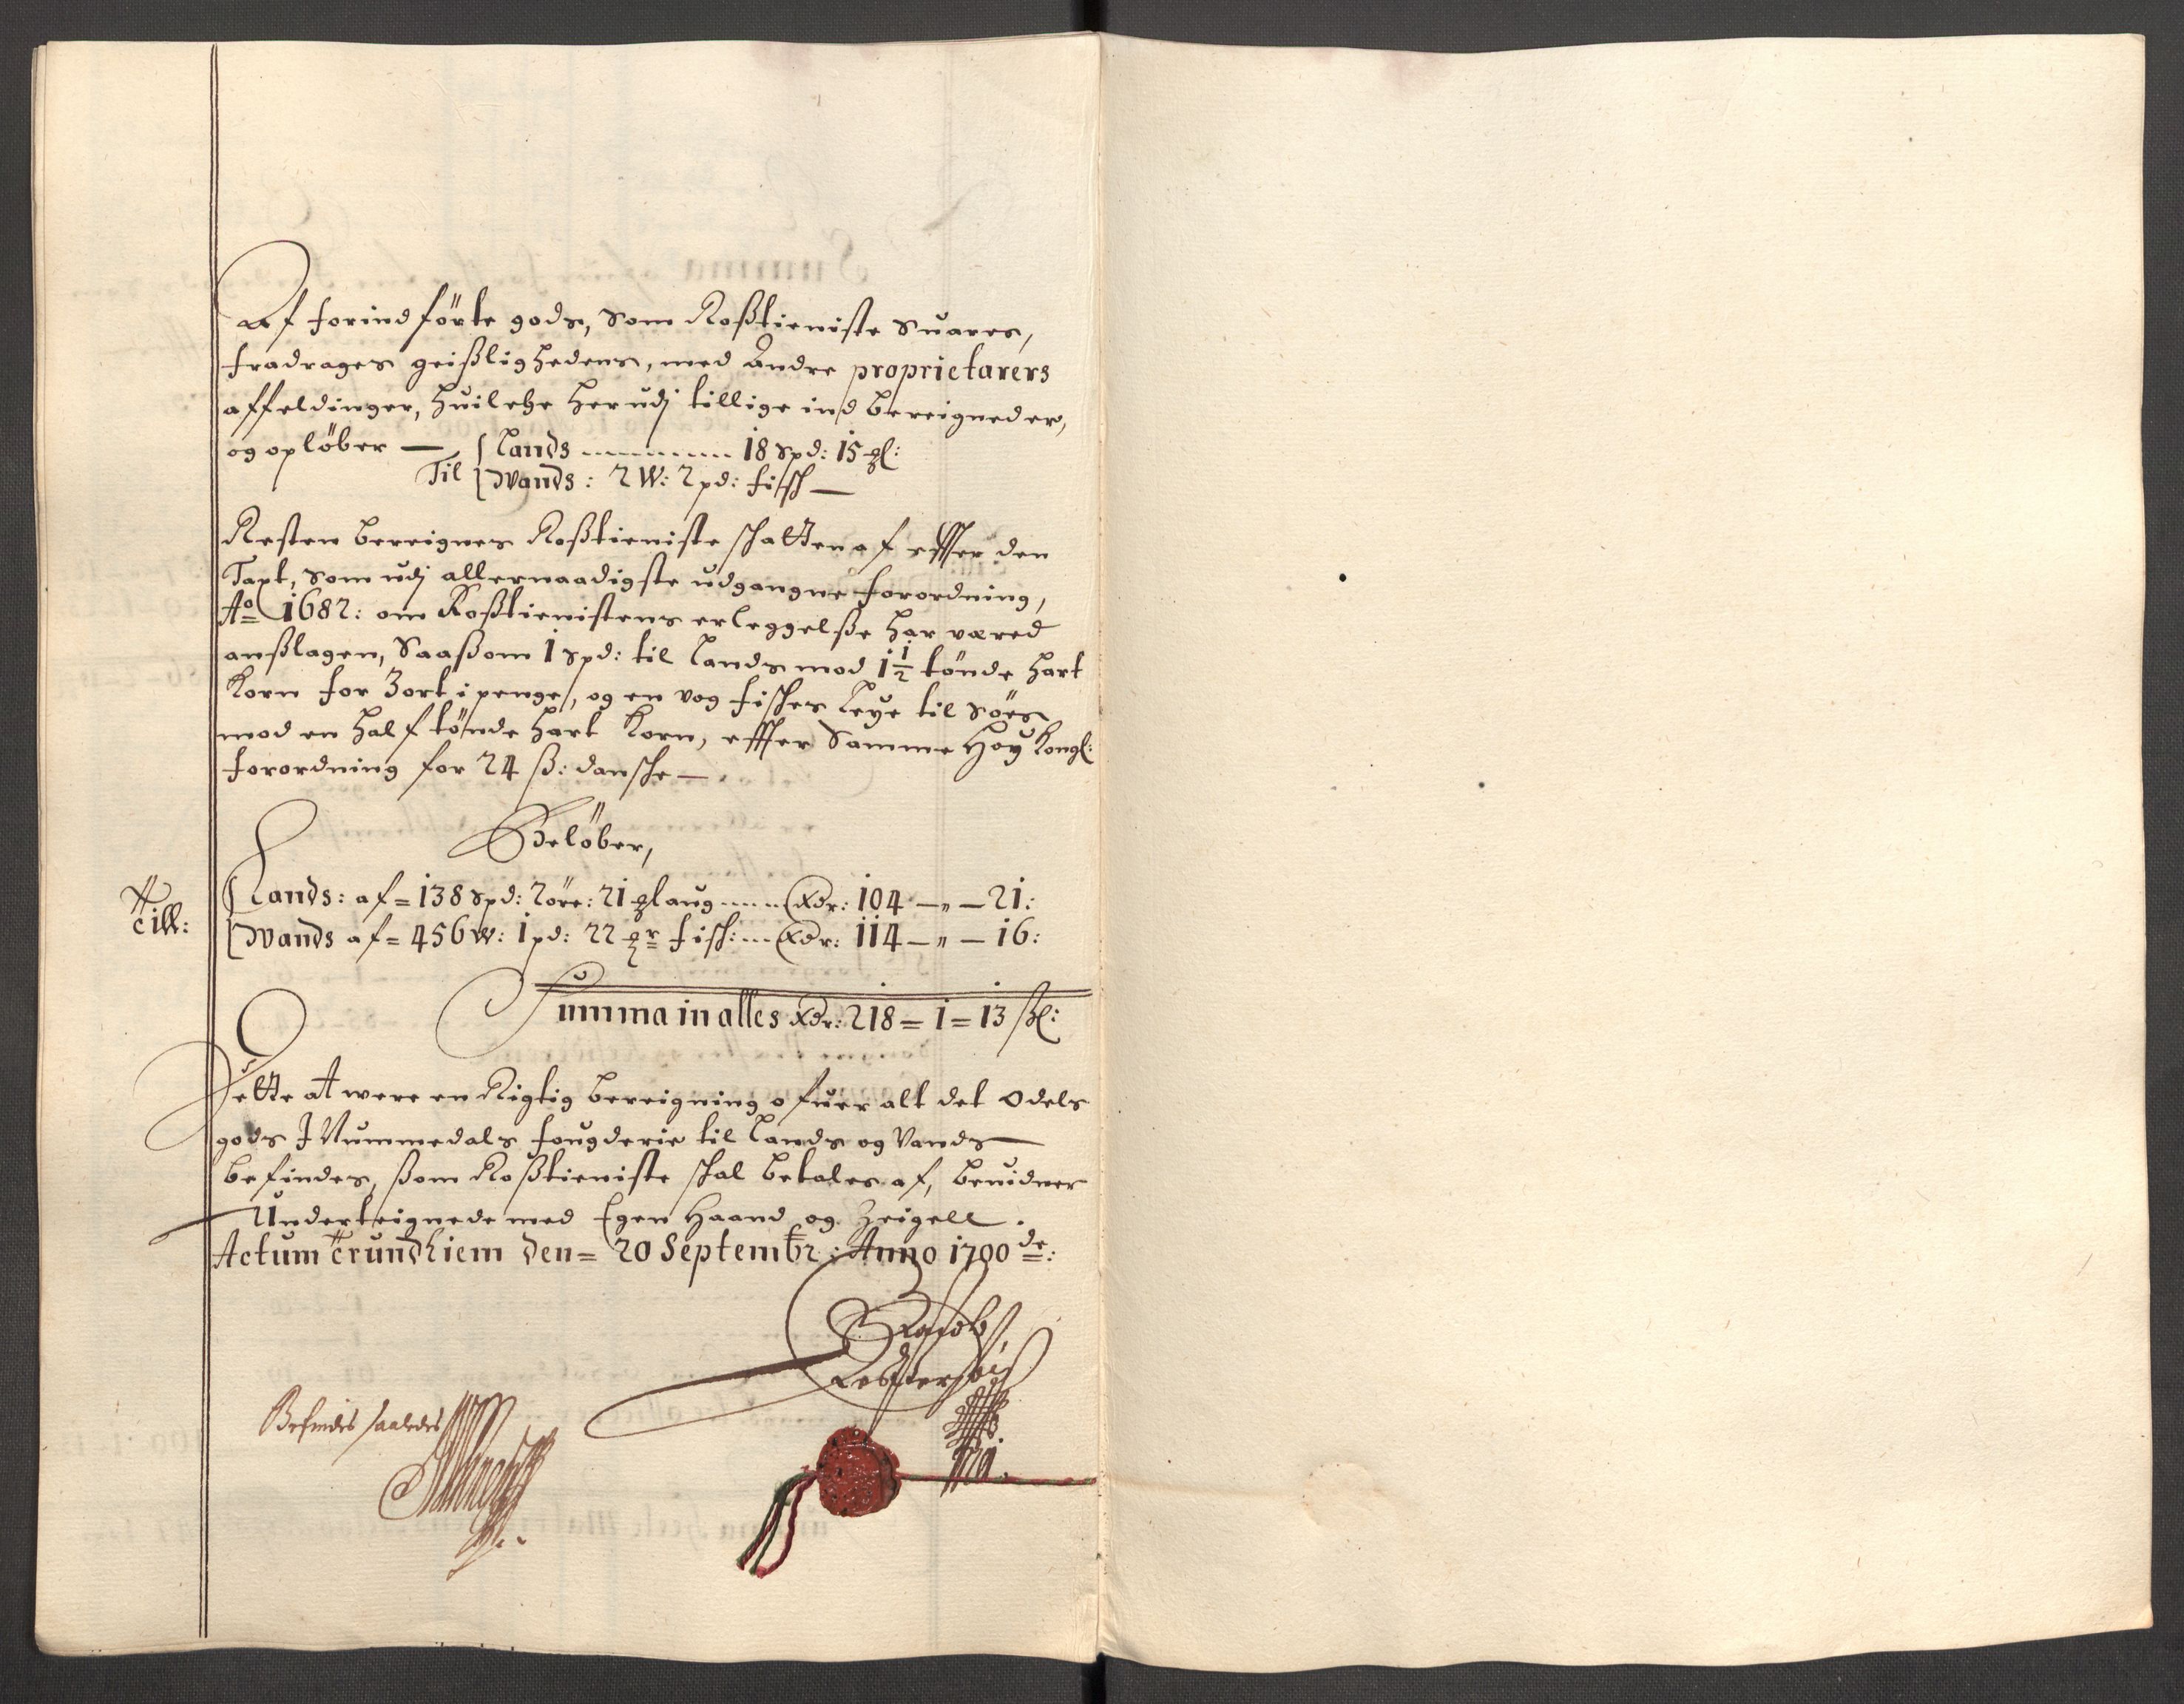 Af forindförte gods, som Roßtieniste suares,
fradrages geißlighedens, med andre proprietarers
affeldinger, huilche herudj tillige ind bereigned er,
og oplöber — Lands ........ 18 spd: 15 ℳl:
Til Wands: 2 W: 2 pd: fisch —
Resten bereignes Roßtieniste schatten af effter den
Taxt, som udj allernaadigste udgangne forordning,
Ao 1682: om Roßtienistens erleggelße har vered
anßlagen, Saaßom 1 spd: til Lands mod 1 1/2 tönde hart
Korn for 3 ort i penge, og en vog fisches Leye til Söes
mod en half tönde hart Korn, effter Samme Høy Kongl:
forordning for 24 ß: dansche —
Belöber,
Till: Lands: af = 138 spd: 2 öre: 21 ℳl aug ..... Rdr: 104 — „ — 21:
Wands af = 456 W: 1 pd: 22 ℳr fisch: ... Rdr: 114 — „ — 16:
Summa in alles Rdr: 218 = 1 = 13 ßl:
Dette At were en Rigtig bereigning ofuer alt det Odels
gods J Nummedals fougderie til Lands og Vands
befindes, ßom Roßtieniste schal betales af, beuidner
Underteignede med Egen Haand og Zeigell.
Actum Trundhiem den = 20 Septembr: Anno 1700 de:
Befindes saaledes